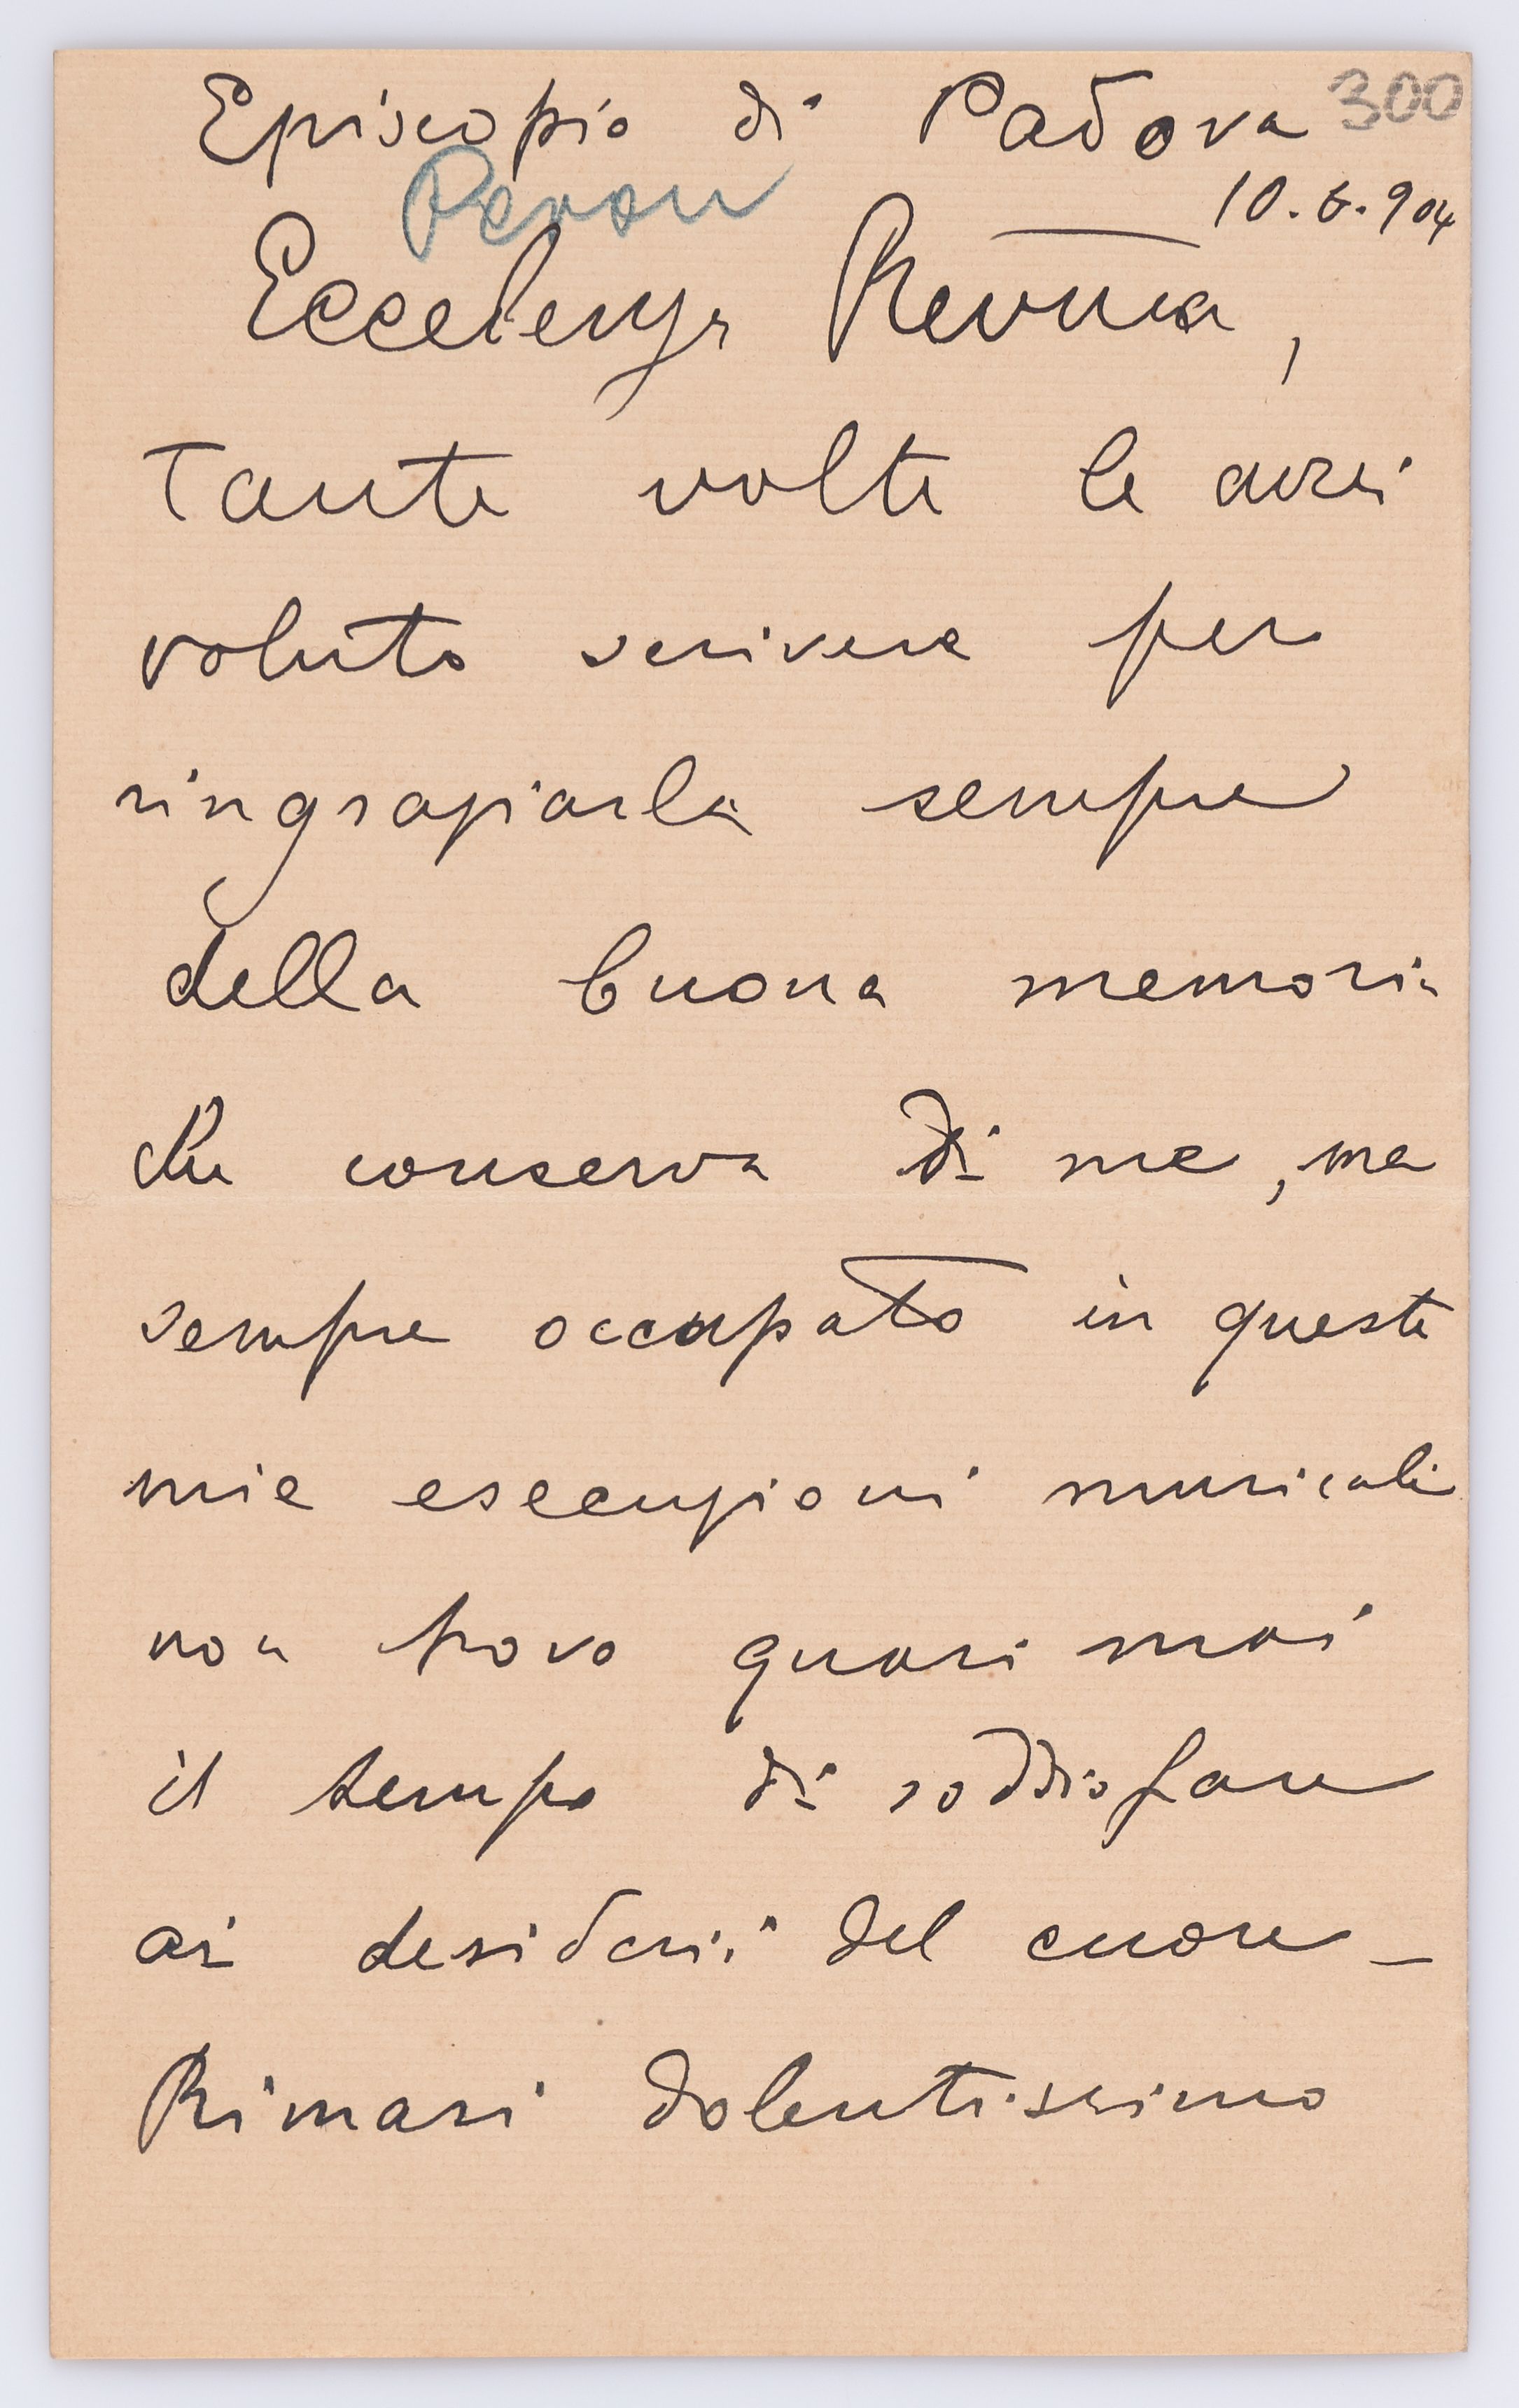 Episcopio di Padova 300
10.6.904
Eccelenza Revma,
Tante volte le avrei
voluto scrivere per
ringraziarla sempre
della buona memoria
che conserva di me, ma
sempre occupato in queste
mie esecuzioni musicali
non trovo quasi mai
il tempo di soddisfare
ai desiderii del cuore_
Rimasi dolentissimo